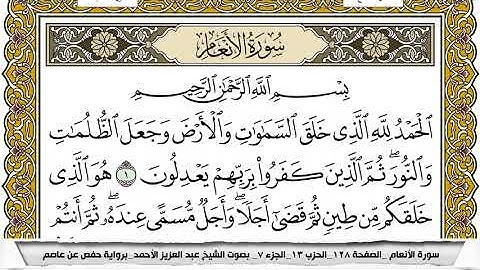 سُورَةُ الأَنْعَامِ
بِسْمِ ٱللَّهِ ٱلرَّحْمَٰنِ ٱلرَّحِيمِ
ٱلْحَمْدُ لِلَّهِ ٱلَّذِى خَلَقَ ٱلسَّمَٰوَٰتِ وَٱلْأَرْضَ وَجَعَلَ ٱلظُّلُمَٰتِ
وَٱلنُّورَۖ ثُمَّ ٱلَّذِينَ كَفَرُوا۟ بِرَبِّهِمْ يَعْدِلُونَ ١ هُوَ ٱلَّذِى
خَلَقَكُم مِّن طِينٍ ثُمَّ قَضَىٰٓ أَجَلًاۖ وَأَجَلٌ مُّسَمًّى عِندَهُۥۖ ثُمَّ أَنتُمْ
سورة الأنعام _الصفحة ١٢٨_الحزب ١٣_الجزء ٧_ بصوت الشيخ عبد العزيز الأحمد_برواية حفص عن عاصم